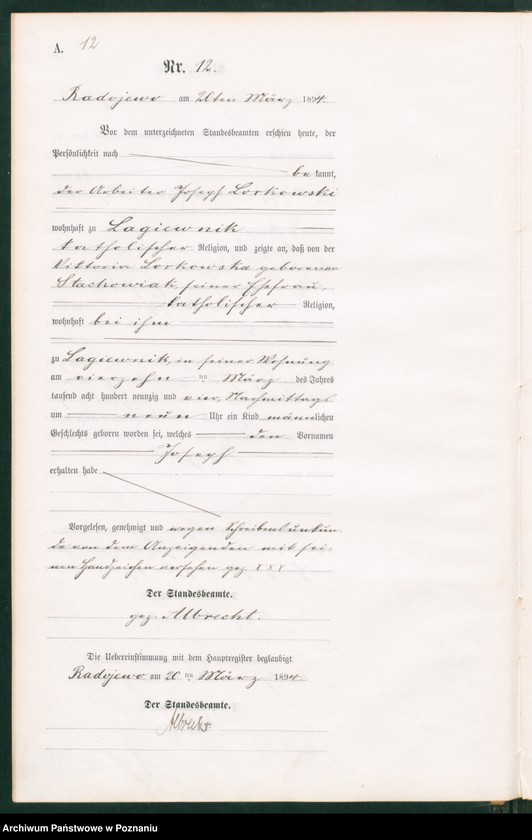 A. 12
Nr. 12.
Radojewo am 20ten März 1894.
Vor dem unterzeichneten Standesbeamten erschien heute, der
Persönlichkeit nach
be kannt,
der Arbeiter Joseph Lorkowski
wohnhaft zu Lagiewnik
katholischer Religion, und zeigte an, daß von der
Viktoria Lorkowska geborenen
Stachowiak, seiner Ehefrau,
katholischer Religion,
wohnhaft bei ihm
zu Lagiewnik, in seiner Wohnung
am vierzehn ten März des Jahres
tausend acht hundert neunzig und vier, Nachmittags
um neun Uhr ein Kind männlichen
Geschlechts geboren worden sei, welches den Vornamen
Joseph
erhalten habe
Vorgelesen, genehmigt und wegen Schreibensunkun
de von dem Anzeigenden mit sei
nen Handzeichen versehen gez. X X X
Der Standesbeamte.
gez. Albrecht.
Die Uebereinstimmung mit dem Hauptregister beglaubigt
Radojewo am 20 ten März 1894.
Der Standesbeamte.
Albrecht.
Archiwum Państwowe w Poznaniu